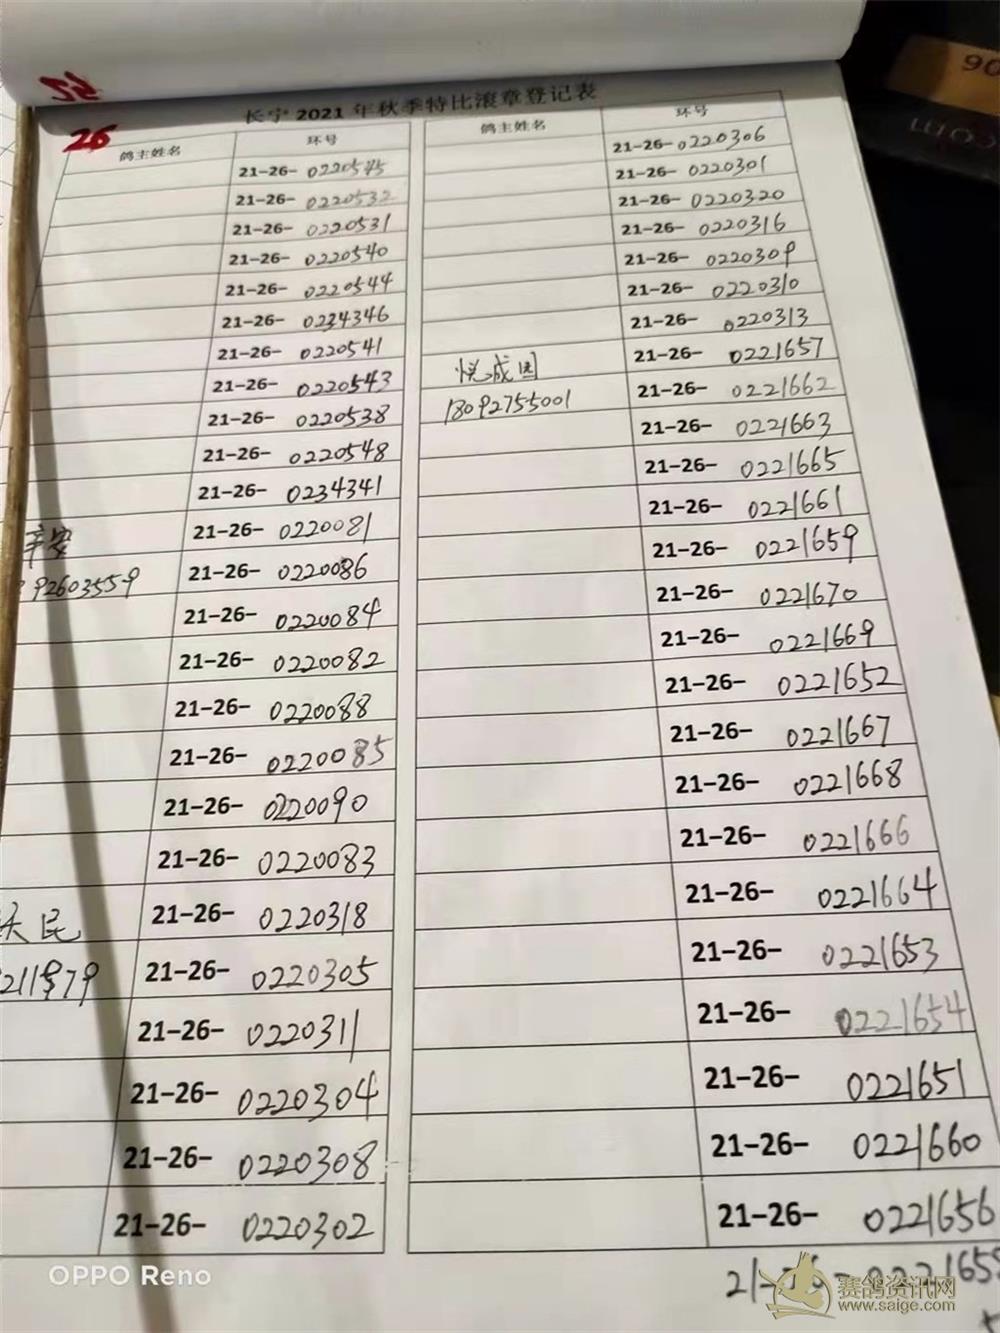 26
长宁 2021 年秋季特比滚章登记表
鸽主姓名 环号
21-26- 0220545
21-26- 0220532
21-26- 0220531
21-26- 0220540
21-26- 0220544
21-26- 0234346
21-26- 0220541
21-26- 0220543
21-26- 0220538
21-26- 0220548
21-26- 0234341
辛安 21-26- 0220081
92603559 21-26- 0220086
21-26- 0220084
21-26- 0220082
21-26- 0220088
21-26- 0220085
21-26- 0220090
21-26- 0220083
民 21-26- 0220318
21-26- 0220305
21-26- 0220311
21-26- 0220304
21-26- 0220308
21-26- 0220302
鸽主姓名 环号
21-26- 0220306
21-26- 0220301
21-26- 0220320
21-26- 0220316
21-26- 0220309
21-26- 0220310
21-26- 0220313
悦成园 21-26- 0221657
18092755001 21-26- 0221662
21-26- 0221663
21-26- 0221665
21-26- 0221661
21-26- 0221659
21-26- 0221670
21-26- 0221669
21-26- 0221652
21-26- 0221667
21-26- 0221668
21-26- 0221666
21-26- 0221664
21-26- 0221653
21-26- 0221654
21-26- 0221651
21-26- 0221660
21-26- 0221656
OPPO Reno
赛鸽资讯网
www.saige.com
90